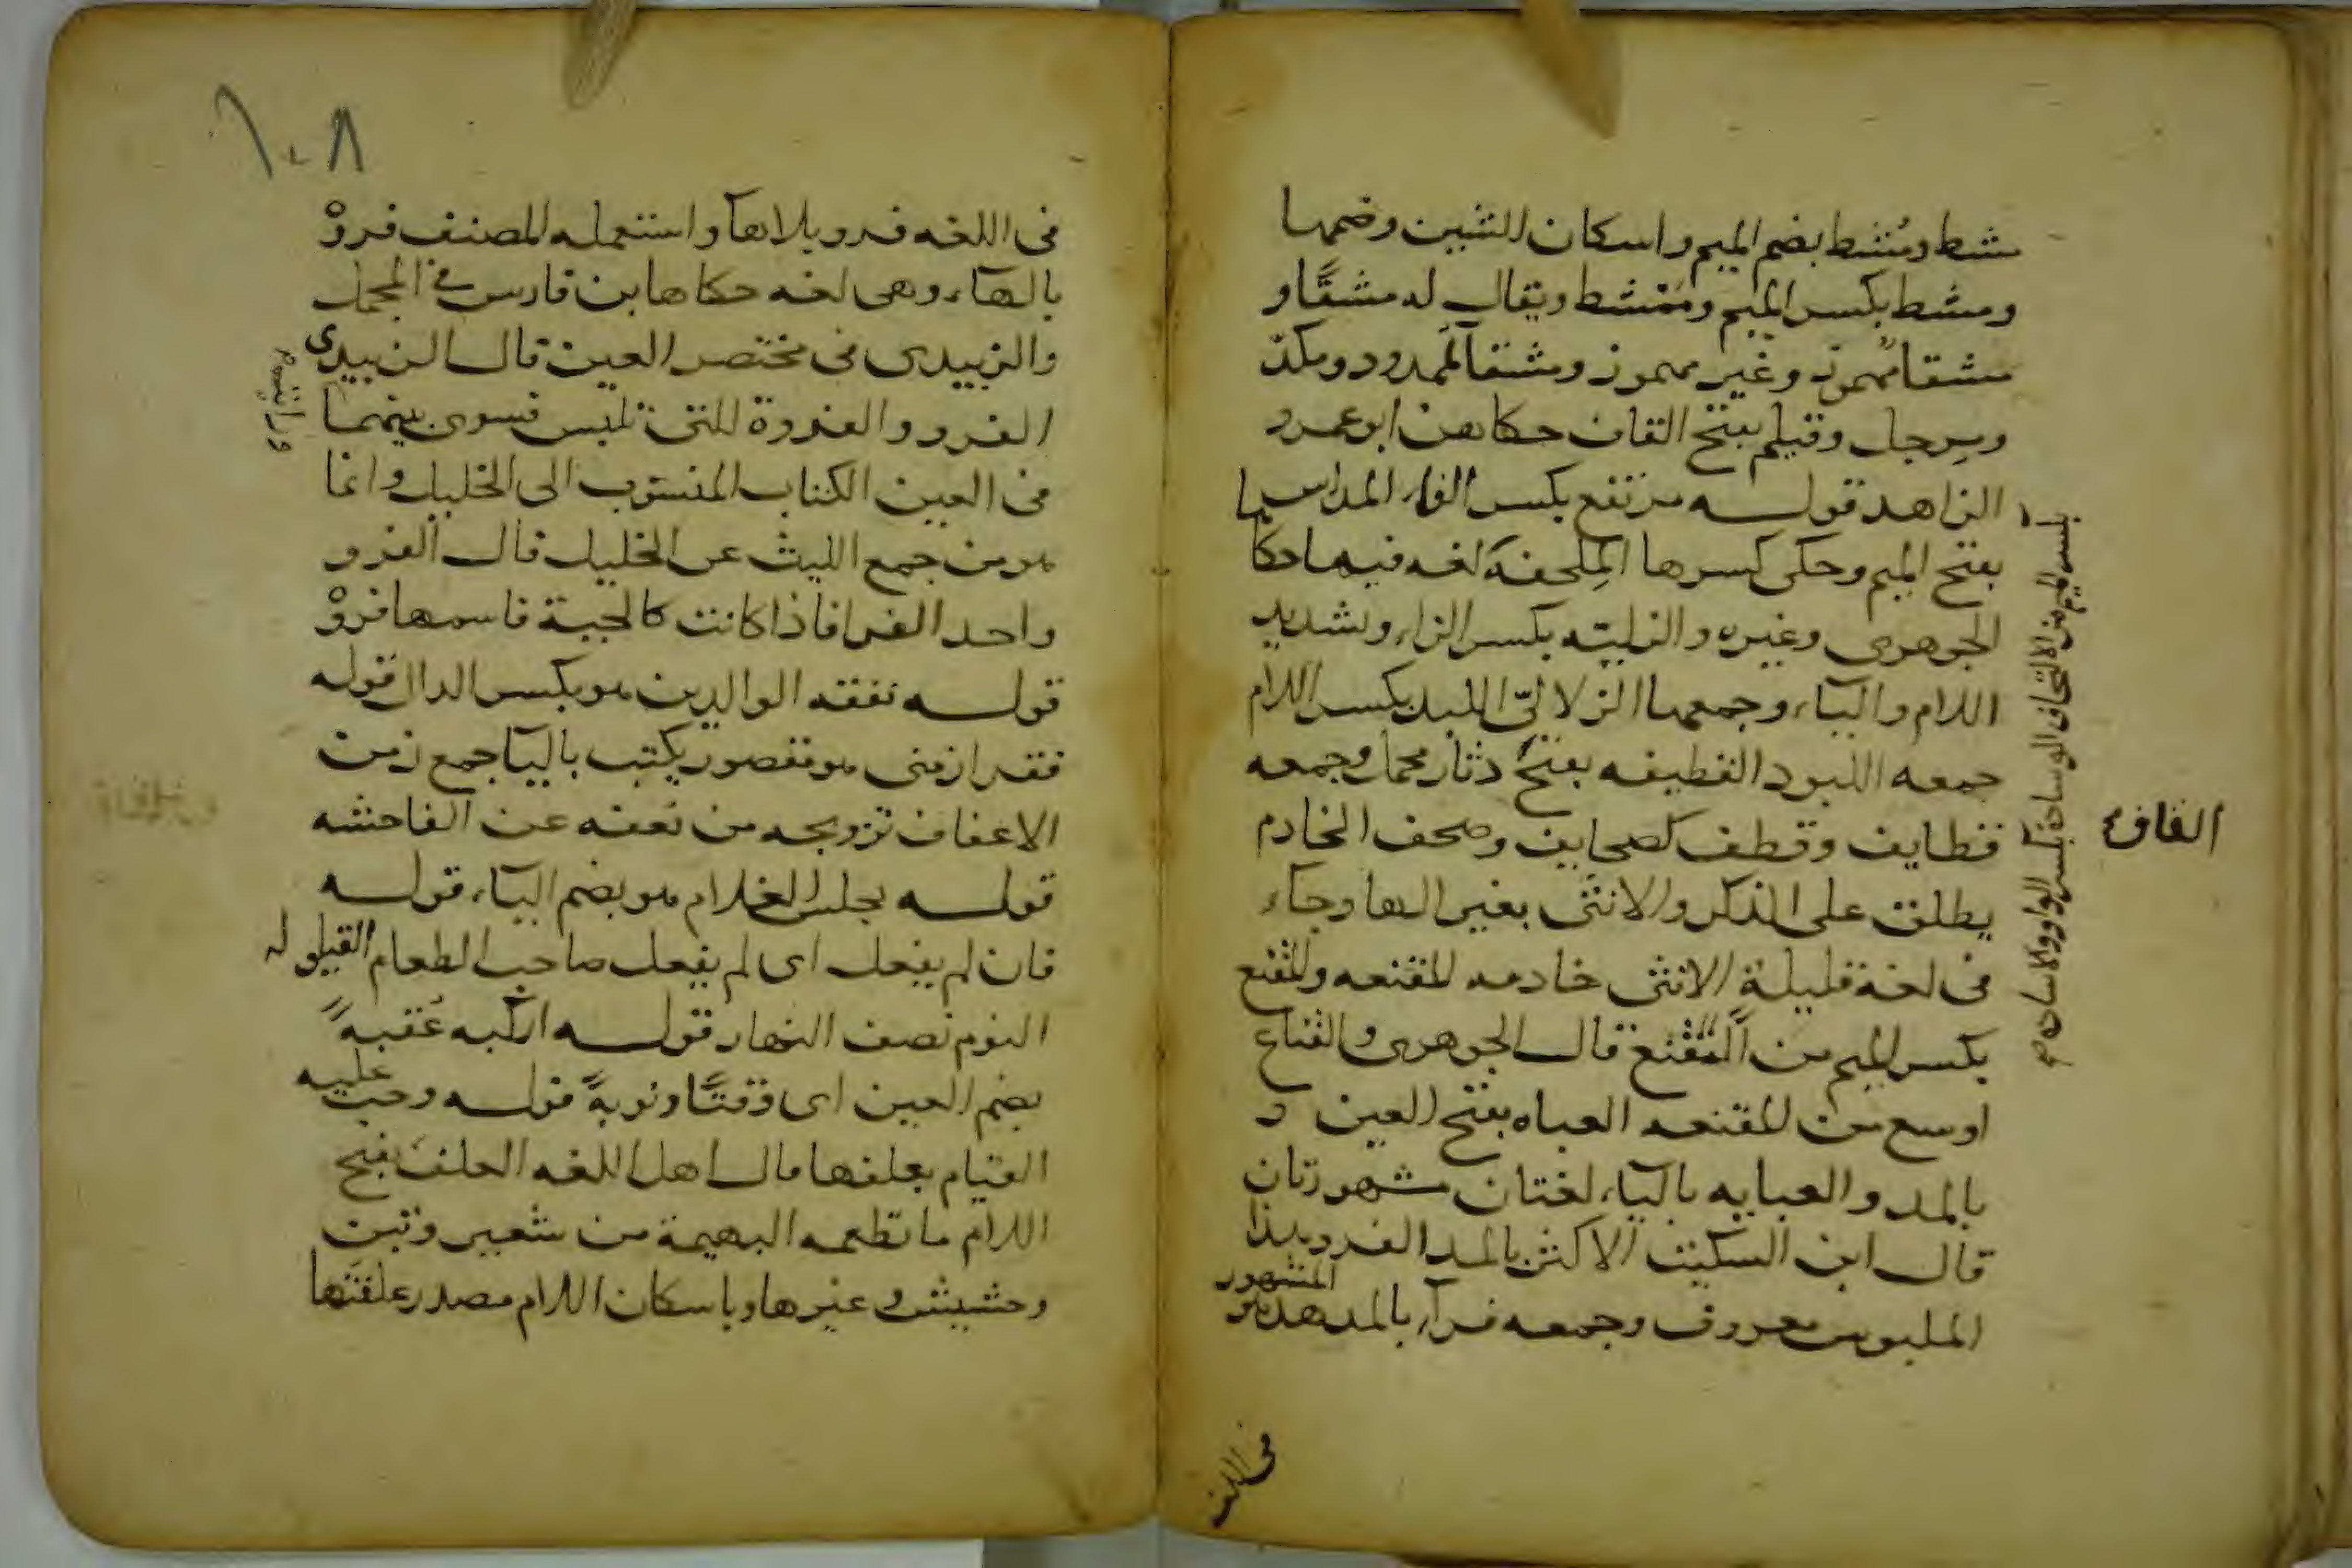 مشط ومُشُط بضم الميم واسكان الشين وضمها
ومشط بكسر الميم وممشط ويقال له مشقًا و
مشقا مهموز وغير مهموز ومشقآ الممدود ومكدّ
ومرجل وقيلم بفتح القاف حكاهن ابو عمرو
الزاهد قوله مرتفع بكسر الفاء المداس
بفتح الميم وحكى كسرها المِلحفة لغه فيها حكا
الجوهرى وغيره والزليّه بكسر الزاء وتشديد
اللام والياء وجمعها الزلاليّ اللبد بكسر اللام
جمعه اللبود القطيفه بفتح دثار مخمل وجمعه
قطايف وقطف كصحايف وصحف الخادم
يطلق على الذكر والانثى بغير الها وجآء
فى لغة قليلة الانثى خادمه المقنعه والمقنع
بكسر الميم من التقنع قال الجوهرى والقناع
اوسع من المقنعه العباه بفتح العين و
بالمد والعبايه بالياء لغتان مشهورتان
قال ابن السكيت الاكثر بالمد الفرو هذا
الملبوس معروف وجمعه فرآء بالمد هذا هو المشهور
فى اللغه
القاف
بكسر الميم من الالتحاف الوسادة بكسر الواو والاساده
١٠٨
فى اللغه فرو بلا هآ واستعمله المصنف فروْ
بالهآء وهى لغه حكاها بن فارس فى المجمل
والزبيدى فى مختصر العين قال الزبيدى
الفرو والفروة التى تلبس فسوى بينهما
فى العين الكتاب المنسوب الى الخليل وانما
هو من جمع الليث عن الخليل قال الفرو
واحد الفرا فاذا كانت كالجبة فاسمها فروْ
قوله نفقه الوالدين هو بكسر الدال قوله
فقرا زمنى هو مقصور يكتب باليآ جمع زمن
الاعفاف تزويجه من تعفه عن الفاحشه
قوله يجلس الغلام هو بضم اليآء قوله
فان لم يفعل اى لم يفعل صاحب الطعام القيلوله
النوم نصف النهار قوله اركبه عُقبهً
بضم العين اى وقتًا ونوبةً قوله وجب عليه
القيام بعلفها قال اهل اللغه العلف بفتح
اللام ما تطعمه البهيمة من شعير وتبن
وحشيش وغيرها وباسكان اللام مصدر علفتها